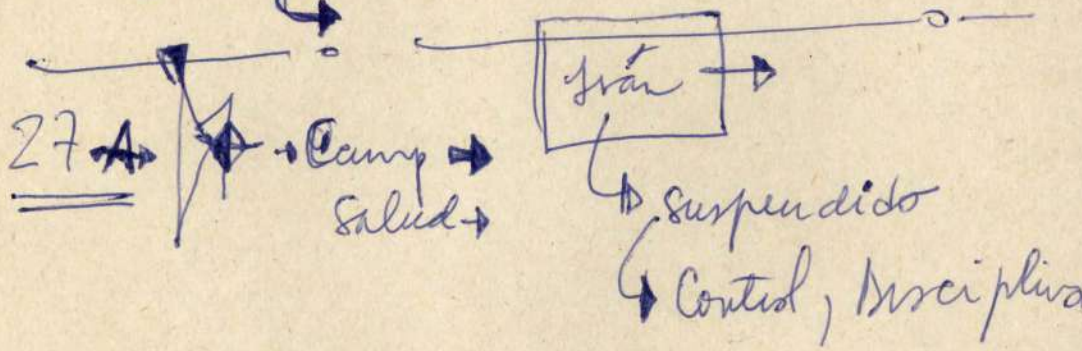 Iván
27 A Camp
Salud
suspendido
Control, Disciplina